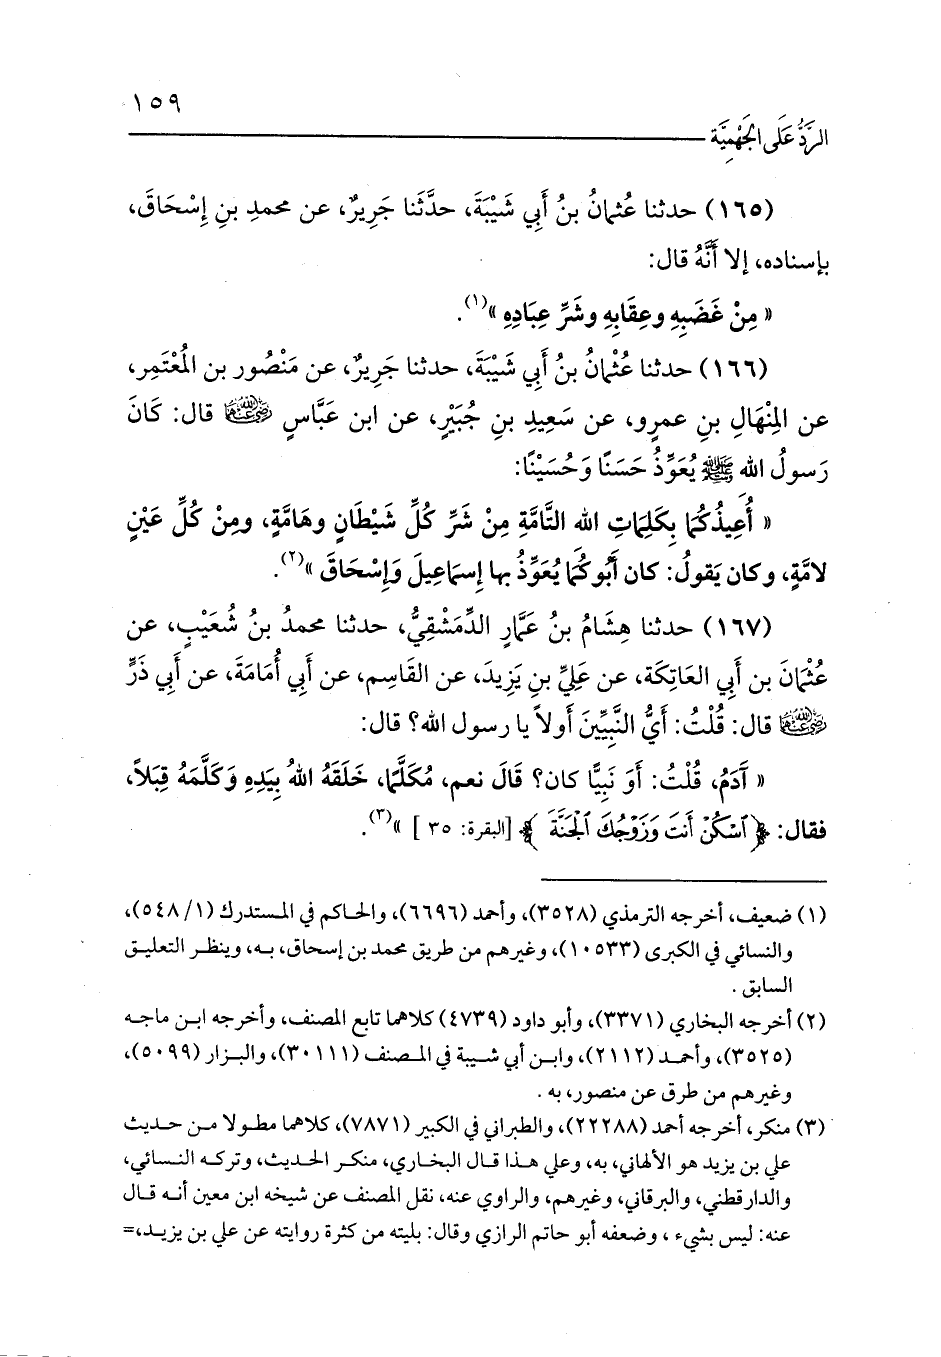 ١٥٩
الرَّدُّ عَلَى الجَهْمِيَّة
(١٦٥) حدثنا عُثمانُ بنُ أَبي شَيْبَةَ، حدَّثَنا جَرِيرٌ، عن محمدِ بنِ إسْحَاقَ،
بإسناده، إلا أَنَّهُ قال:
« مِنْ غَضَبِهِ وعِقَابِهِ وشَرِّ عِبَادِهِ »(١).
(١٦٦) حدثنا عُثْمانُ بنُ أَبي شَيْبَةَ، حدثنا جَرِيرٌ، عن مَنْصُور بن المُعْتَمِر،
عن المِنْهَالِ بنِ عمرو، عن سَعِيدِ بنِ جُبَيْرٍ، عن ابن عَبَّاسٍ رضي الله عنهما قال: كَانَ
رَسولُ الله ﷺ يُعَوِّذُ حَسَنًا وَحُسَيْنًا:
« أُعِيذُكُمَا بِكَلِمَاتِ الله التَّامَّةِ مِنْ شَرِّ كُلِّ شَيْطَانٍ وهَامَّةٍ، ومِنْ كُلِّ عَيْنٍ
لامَّةٍ، وكان يَقولُ: كان أَبُوكُمَا يُعَوِّذُ بها إسْمَاعِيلَ وَإسْحَاقَ »(٢).
(١٦٧) حدثنا هِشَامُ بنُ عَمَّارٍ الدِّمَشْقِيُّ، حدثنا محمدُ بنُ شُعَيْبٍ، عن
عُثْمَانَ بن أَبي العَاتِكَة، عن عَلِيِّ بنِ يَزِيدَ، عن القَاسِم، عن أَبي أُمَامَةَ، عن أَبي ذَرٍّ
رضي الله عنهما قال: قُلْتُ: أَيُّ النَّبِيِّينَ أَولاً يا رسول الله؟ قال:
« آدَمُ، قُلْتُ: أَوَ نَبِيًّا كان؟ قَالَ نعم، مُكَلَّمًا، خَلَقَهُ اللهُ بِيَدِهِ وَكَلَّمَهُ قِبَلاً،
فقال: ﴿ ٱسْكُنْ أَنتَ وَزَوْجُكَ ٱلْجَنَّةَ ﴾ [البقرة: ٣٥ ] »(٣).
(١) ضعيف، أخرجه الترمذي (٣٥٢٨)، وأحمد (٦٦٩٦)، والحاكم في المستدرك (١/ ٥٤٨)،
والنسائي في الكبرى (١٠٥٣٣)، وغيرهم من طريق محمد بن إسحاق، به، وينظر التعليق
السابق .
(٢) أخرجه البخاري (٣٣٧١)، وأبو داود (٤٧٣٩) كلاهما تابع المصنف، وأخرجه ابن ماجه
(٣٥٢٥)، وأحمد (٢١١٢)، وابن أبي شيبة في المصنف (٣٠١١١)، والبزار (٥٠٩٩)،
وغيرهم من طرق عن منصور، به .
(٣) منكر، أخرجه أحمد (٢٢٢٨٨)، والطبراني في الكبير (٧٨٧١)، كلاهما مطولا من حديث
علي بن يزيد هو الألهاني، به، وعلي هذا قال البخاري، منكر الحديث، وتركه النسائي،
والدارقطني، والبرقاني، وغيرهم، والراوي عنه، نقل المصنف عن شيخه ابن معين أنه قال
عنه: ليس بشيء ، وضعفه أبو حاتم الرازي وقال: بليته من كثرة روايته عن علي بن يزيد،=